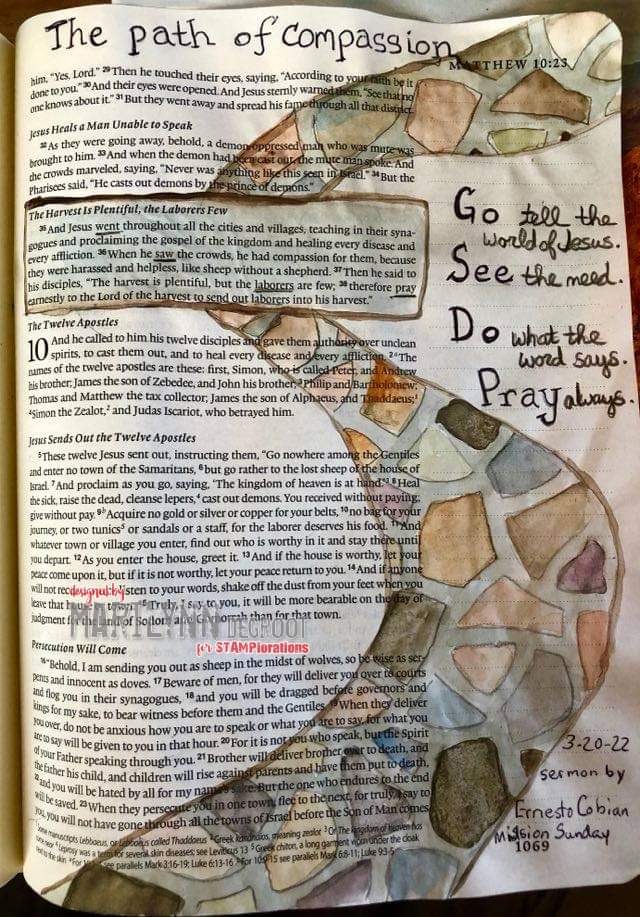 The path of Compassion
MATTHEW 10:23
him, "Yes, Lord." 29 Then he touched their eyes, saying, "According to your faith be it
done to you." 30 And their eyes were opened. And Jesus sternly warned them, "See that no
one knows about it." 31 But they went away and spread his fame through all that district.
Jesus Heals a Man Unable to Speak
32 As they were going away, behold, a demon-oppressed man who was mute was
brought to him. 33 And when the demon had been cast out, the mute man spoke. And
the crowds marveled, saying, "Never was anything like this seen in Israel." 34 But the
Pharisees said, "He casts out demons by the prince of demons."
The Harvest Is Plentiful, the Laborers Few
35 And Jesus went throughout all the cities and villages, teaching in their syna-
gogues and proclaiming the gospel of the kingdom and healing every disease and
every affliction. 36 When he saw the crowds, he had compassion for them, because
they were harassed and helpless, like sheep without a shepherd. 37 Then he said to
his disciples, "The harvest is plentiful, but the laborers are few; 38 therefore pray
earnestly to the Lord of the harvest to send out laborers into his harvest."
The Twelve Apostles
10 And he called to him his twelve disciples and gave them authority over unclean
spirits, to cast them out, and to heal every disease and every affliction. 2 The
names of the twelve apostles are these: first, Simon, who is called Peter, and Andrew
his brother; James the son of Zebedee, and John his brother; 3 Philip and Bartholomew;
Thomas and Matthew the tax collector; James the son of Alphaeus, and Thaddaeus;
4 Simon the Zealot, and Judas Iscariot, who betrayed him.
Jesus Sends Out the Twelve Apostles
5 These twelve Jesus sent out, instructing them, "Go nowhere among the Gentiles
and enter no town of the Samaritans, 6 but go rather to the lost sheep of the house of
Israel. 7 And proclaim as you go, saying, 'The kingdom of heaven is at hand.' 8 Heal
the sick, raise the dead, cleanse lepers, cast out demons. You received without paying;
give without pay. 9 Acquire no gold or silver or copper for your belts, 10 no bag for your
journey, or two tunics or sandals or a staff, for the laborer deserves his food. 11 And
whatever town or village you enter, find out who is worthy in it and stay there until
you depart. 12 As you enter the house, greet it. 13 And if the house is worthy, let your
peace come upon it, but if it is not worthy, let your peace return to you. 14 And if anyone
will not listen to your words, shake off the dust from your feet when you
leave that town. 15 Truly, I say to you, it will be more bearable on the day of
judgment for the land of Sodom and Gomorrah than for that town.
designed by
MARILYNN DEGROOT
for STAMPlorations
Persecution Will Come
16 "Behold, I am sending you out as sheep in the midst of wolves, so be wise as ser-
pents and innocent as doves. 17 Beware of men, for they will deliver you over to courts
and flog you in their synagogues, 18 and you will be dragged before governors and
kings for my sake, to bear witness before them and the Gentiles. 19 When they deliver
you over, do not be anxious how you are to speak or what you are to say, for what you
are to say will be given to you in that hour. 20 For it is not you who speak, but the Spirit
of your Father speaking through you. 21 Brother will deliver brother over to death, and
the father his child, and children will rise against parents and have them put to death,
22 and you will be hated by all for my name's sake. But the one who endures to the end
will be saved. 23 When they persecute you in one town, flee to the next, for truly, I say to
you, you will not have gone through all the towns of Israel before the Son of Man comes.
Some manuscripts Lebbaeus, or Lebbaeus called Thaddaeus Greek kananaios, meaning zealot Or The kingdom of heaven has
come near Leprosy was a term for several skin diseases; see Leviticus 13 Greek chiton, a long garment worn under the cloak
next to the skin see parallels Mark 3:16-19; Luke 6:13-16 For 10:5-15 see parallels Mark 6:8-11; Luke 9:3-5
Go tell the
world of Jesus.
See the need.
Do what the
word says.
Pray always.
3-20-22
sermon by
Ernesto Cobian
Mission Sunday
1069